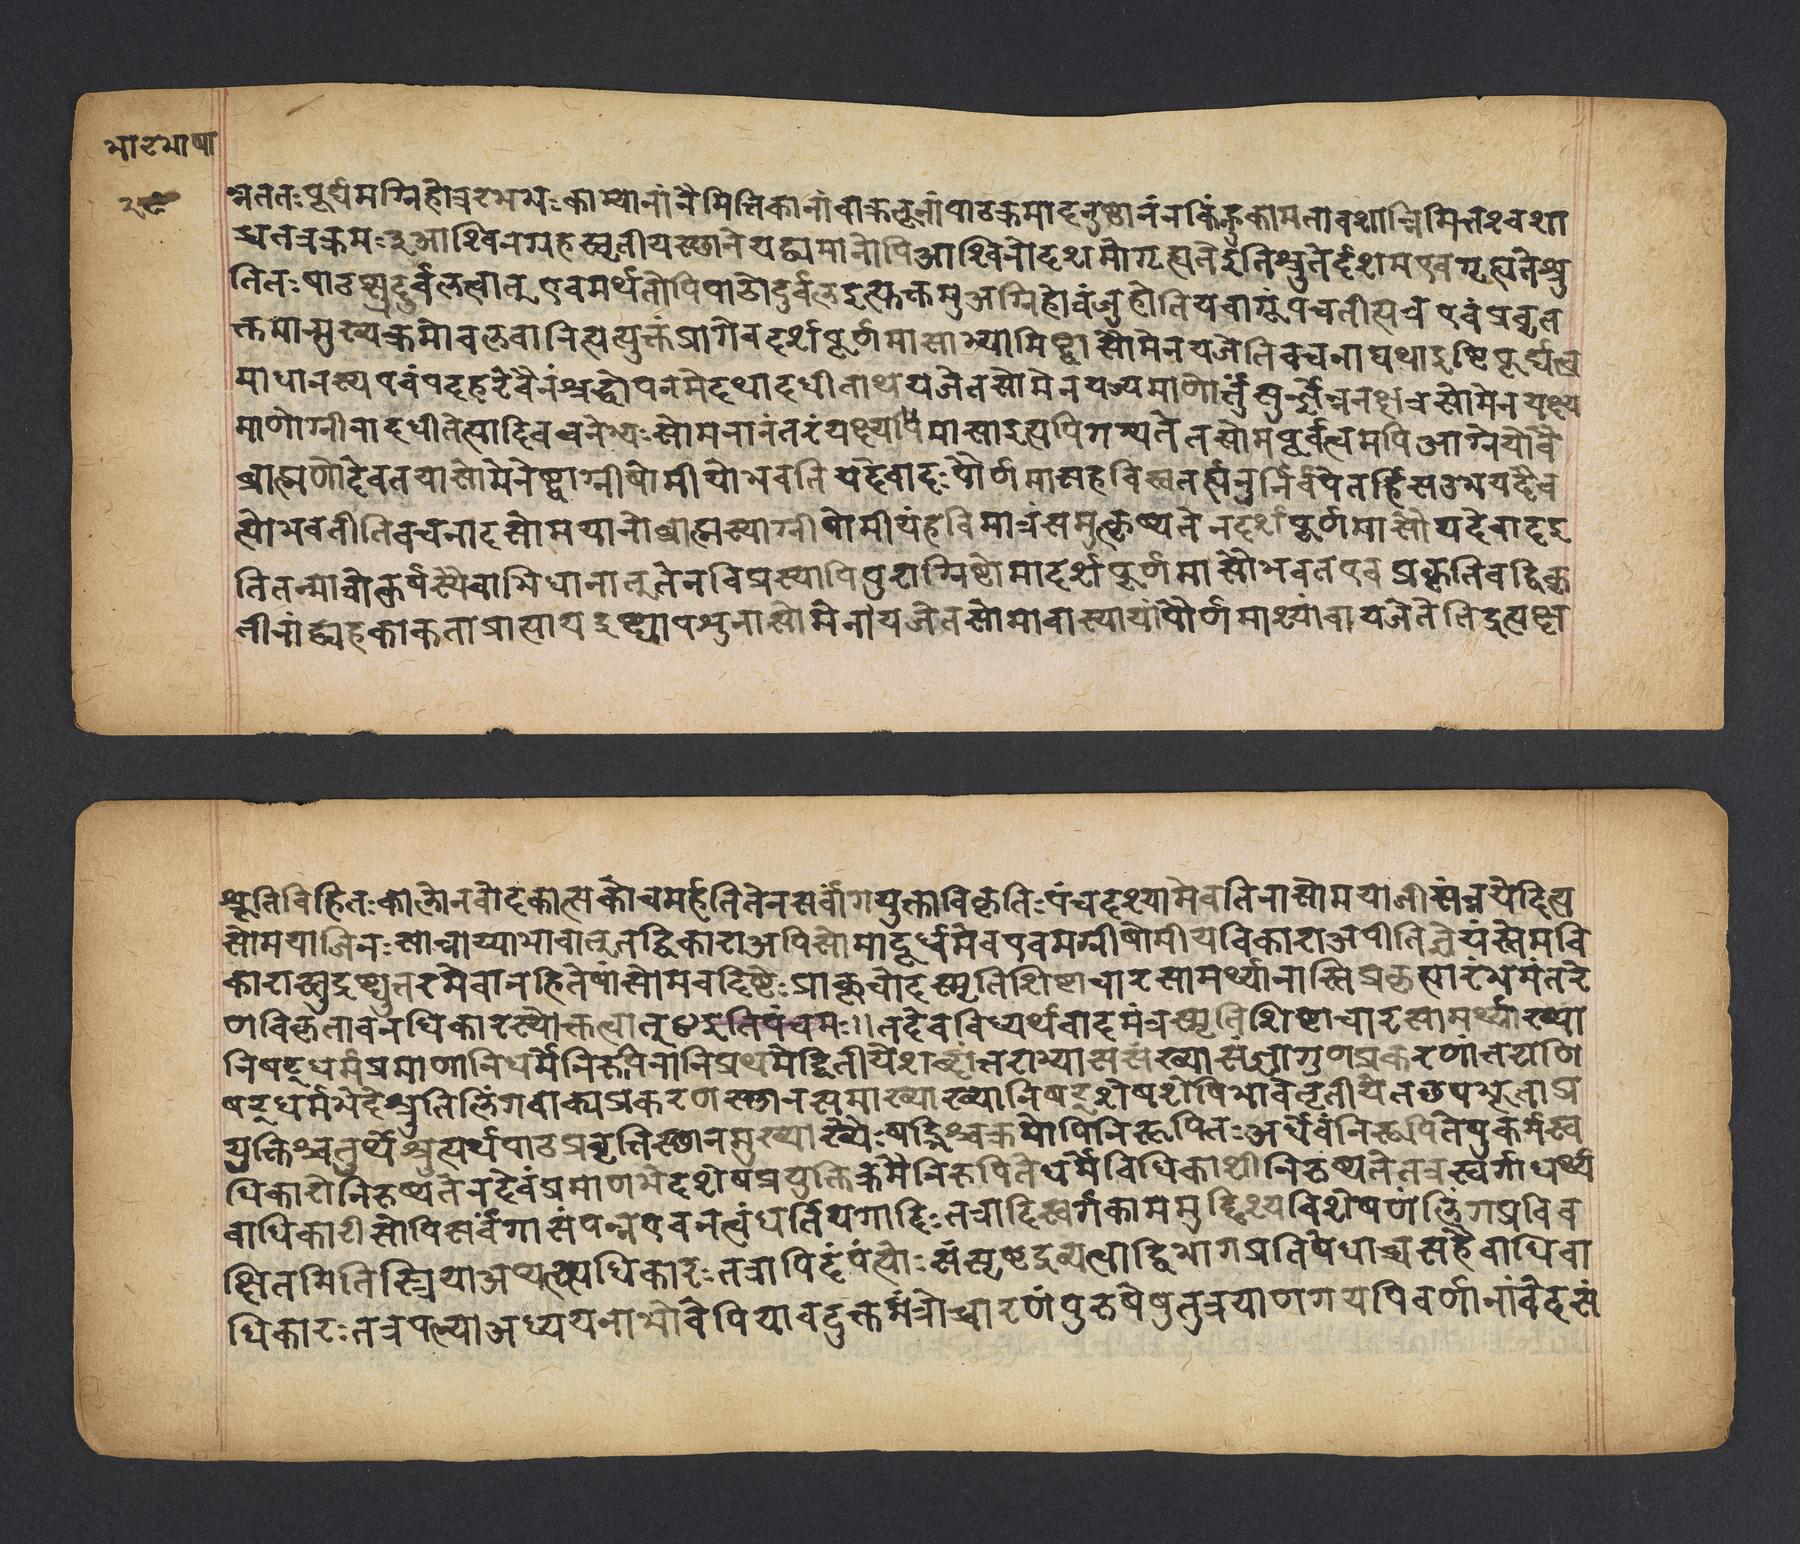 भाटभाषा
२९
श्नततःपूर्वमग्निहोत्ररभभःकाम्यानांनैमित्तिकानांवाक्रतूनांपाठक्रमादनुष्ठानंनकिंतुकामनावशान्निमित्तश्वशा
च्चतत्रक्रमःदुआश्विनग्रहस्तृतीयस्थानेयद्यमानोपिआश्विनोदशमोगृह्यतेइतिश्रुतेर्दशमएवगृह्यतेश्रु
तितःपाठस्यदुर्बलत्वात् एवमर्थतोपिपाठोदुर्बलइत्युक्तमुअग्निहोत्रंजुहोतियवागूंपचतीत्यत्र एवंप्रवृत
क्तमान्मुख्यक्रमोबलवानित्यप्युक्तंप्रागेवदर्शपूर्णमासाभ्यामिष्ट्वासोमेनयजेतिवचनाद्यथाइष्टिपूर्वत्व
माधानस्यएवंपदहरेवैनंश्रद्धोपनमेदथादधीताथयजेतसोमेनयज्यमाणोर्तुंसुर्क्षेन्ननक्षत्रसोमेनयक्ष्य
माणोग्नीनादधीतेत्यादिवचनेभ्यःसोमनानंतरंयक्ष्यपिमासाइत्यपिगम्यते तसोमपूर्वत्वमपिआग्नेयोवै
ब्राह्मणोदेवतयासोमेनेष्ट्वाग्नीषोमीयोभवति यदेवादःपौर्णमासहविस्वतत्संनुर्निर्वपेतर्हिसउभयदैव
त्योभवतीतिवचनादसोमयानोब्राह्मस्याग्नीषोमीयंहविमात्रंसमुत्कृष्यते नदर्शपूर्णमासौयदेवाददु
तितन्मात्रोत्कर्षस्यैवाभिधानात् तेनविप्रस्यापिपुराग्निष्टोमादर्शपूर्णमासौभवतएव प्रकृतिवद्विकृ
तीनांद्यहकालताप्रासायइष्ट्यापशुनासोमेनायजेतसोमावास्यायांपौर्णमास्यांवायजेतेतिदुत्यष्टा
श्रूतिविहितःकालोनवोदकात्सकोचमर्हतितेनसर्वांगयुक्ताविकृतिःपंचदश्यामेवतिनासोमयाजीसंन्नयेदित्य
सोमयाजिनःसान्नाय्याभावात् तद्विकाराअपिसोमादूर्ध्वमेवएवमग्नीषोमीयविकाराअपीतिन्नेयंसोमवि
कारास्तुदृष्ट्युत्तरमेवानहितेषांसोमवदिष्टेःप्राक्कृचोदस्मृतिशिष्टाचारसामर्थ्यानास्तिप्रकृत्यारंभमंतरे
णविकृतावनधिकारस्योक्तत्वात् ४इतिपंचमः॥तदेवविध्यर्थवादमंत्रस्मृतिशिष्टाचारसामर्थ्याख्या
निषड्धर्मप्रमाणानिधर्मेनिरूपितानिप्रथमेद्वितीयेशब्दांतराभ्याससंख्यासंज्ञागुणप्रकरणांतराणि
षड्धर्मभेदेश्रुतिलिंगवाक्यप्रकरणस्थानसमाख्याख्यानिषट्शेषशेषिभावेतृतीयेतछपभृताप्र
युक्तिश्चतुर्थेश्रुत्यर्थपाठप्रवृत्तिस्थानमुख्याख्यैःषड्भिश्चक्रमोपिनिरूपितःअथैवंनिरूपितेषुकर्मस्व
धिकारोनिरूप्यतेनदेवंप्रमाणभेदशेषप्रयुक्तिक्रमैर्निरूपितेधर्मेविधिकाशीनिरूप्यतेतत्रस्वर्गाधर्थ्य
वाधिकारीसोपिसर्वंगासंपन्नएवनत्वंधर्तियगादिःतत्रादिस्वर्गकाममुद्दिश्यविशेषणंलिंगप्रविव
क्षितमितिस्त्रियाअप्यत्स्यधिकारःतत्रापिदंपंत्योःसंसृष्टद्रव्यत्वाद्विभागप्रतिषेधाच्चसहैवाधिवा
धिकारःतत्रपत्न्याअध्ययनाभोवेपियावदुक्तमंत्रोच्चारणंपुरुषेषुतुत्रयाणगयपिवर्णानांवेदसं